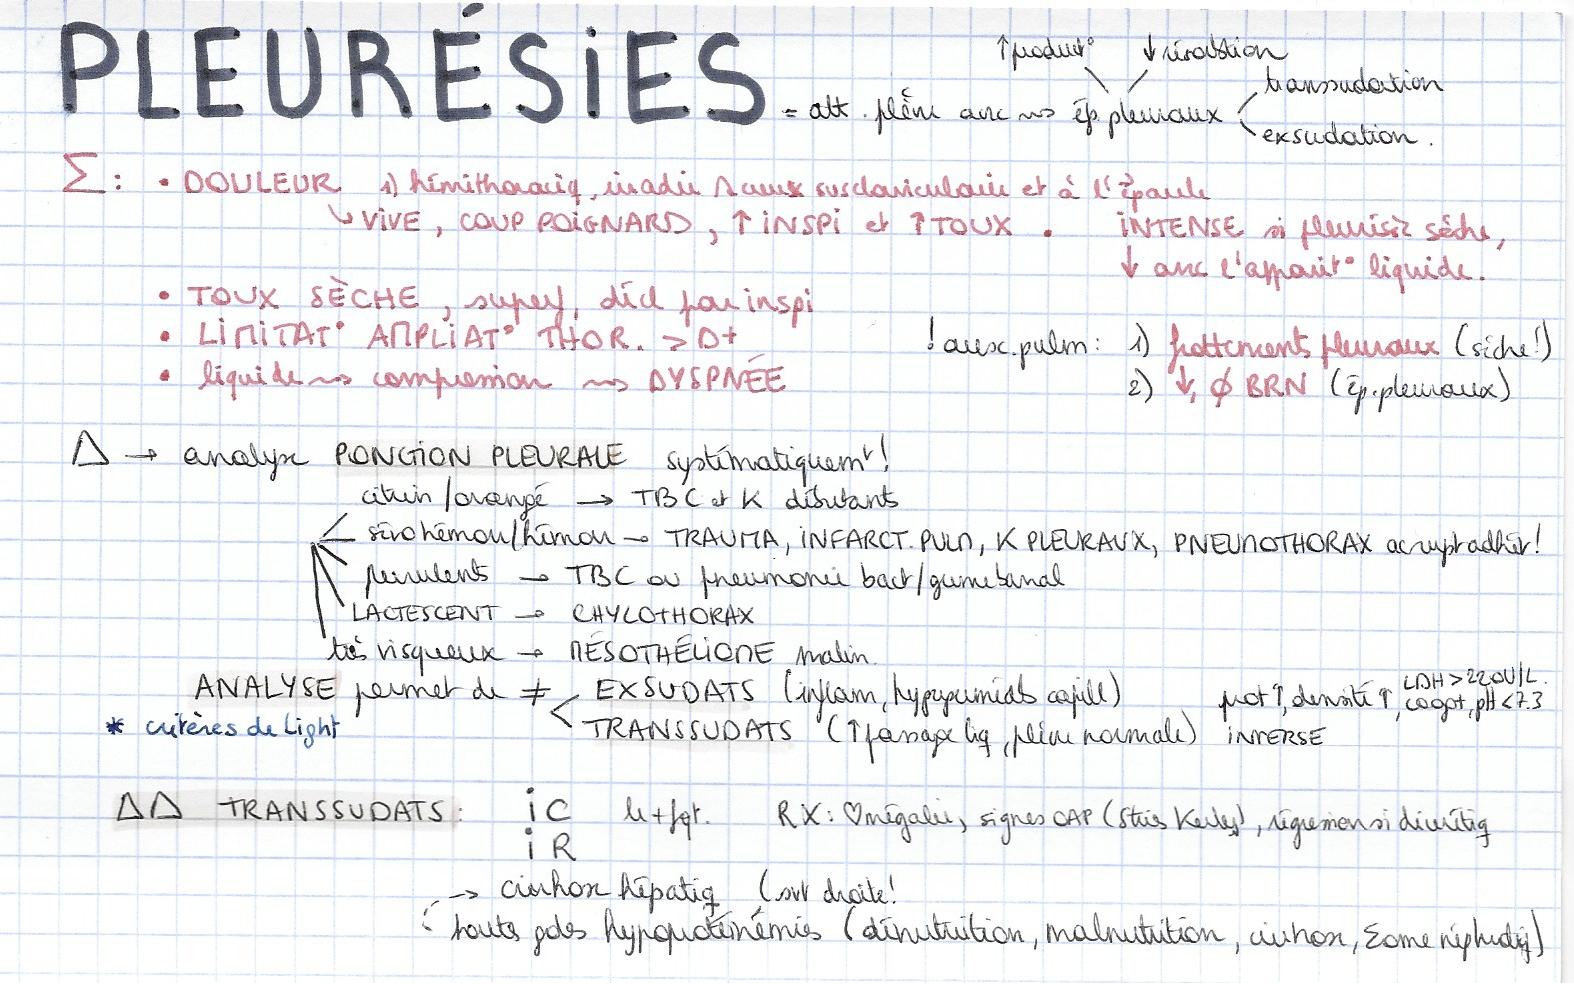 ↑ product° ↓ résorbtion
PLEURÉSIES = att. plèvre avec ⇝ ép. pleuraux < transsudation
exsudation.
Σ : • DOULEUR 1) hémithoraciq, irradie creux susclaviculaire et à l'épaule
↳ VIVE, COUP POIGNARD, ↑ INSPI et ↑ TOUX. INTENSE si pleurésie sèche,
↓ avec l'apparit° liquide.
• TOUX SÈCHE, superf, décl par inspi
• LIMITAT° AMPLIAT° THOR. > D+
! ausc. pulm : 1) frottements pleuraux (sèche!)
• liquide ⇝ compression ⇝ DYSPNÉE
2) ↓, ∅ BRN (ép. pleuraux)
Δ → analyse PONCTION PLEURALE systématiquemt !
citrin/orangé → TBC et K débutants
sérohémorr/hémorr → TRAUMA, INFARCT. PULM, K PLEURAUX, PNEUMOTHORAX ac rupt adhér!
purulents → TBC ou pneumonie bact/germe banal
LACTESCENT → CHYLOTHORAX
très visqueux → MÉSOTHÉLIOME malin.
ANALYSE permet de ≠ < EXSUDATS (inflam, hyperperméab capill) prot ↑, densité ↑, LDH > 220U/L. coagt, pH < 7.3
* critères de Light
TRANSSUDATS (↑ passage liq, plèvre normale) INVERSE
ΔΔ TRANSSUDATS : iC le + fqt. RX : ♡mégalie, signes OAP (Stries Kerley), régression si diurétiq
iR
→ cirrhose hépatiq (srt droite!
toutes gdes hypoprotéinémies (dénutrition, malnutrition, cirrhose, Σome néphrotiq)